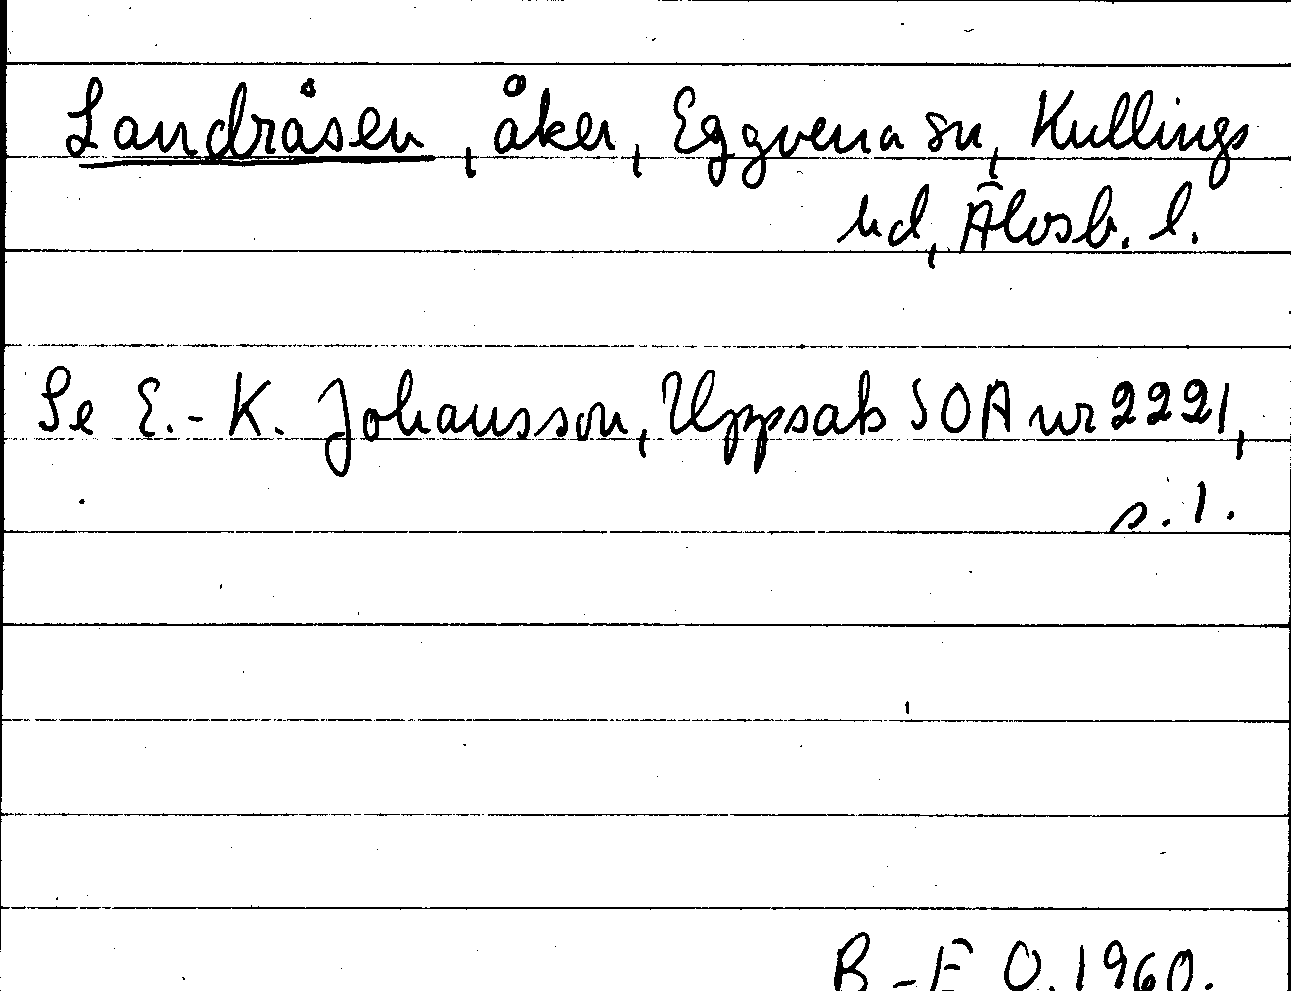 Landråsen, åker, Eggvena sn, Kullings
hd, Älvsb. l.
Se E.-K. Johansson, Uppsats SOA nr 2221,
s. 1.
B-E O. 1960.